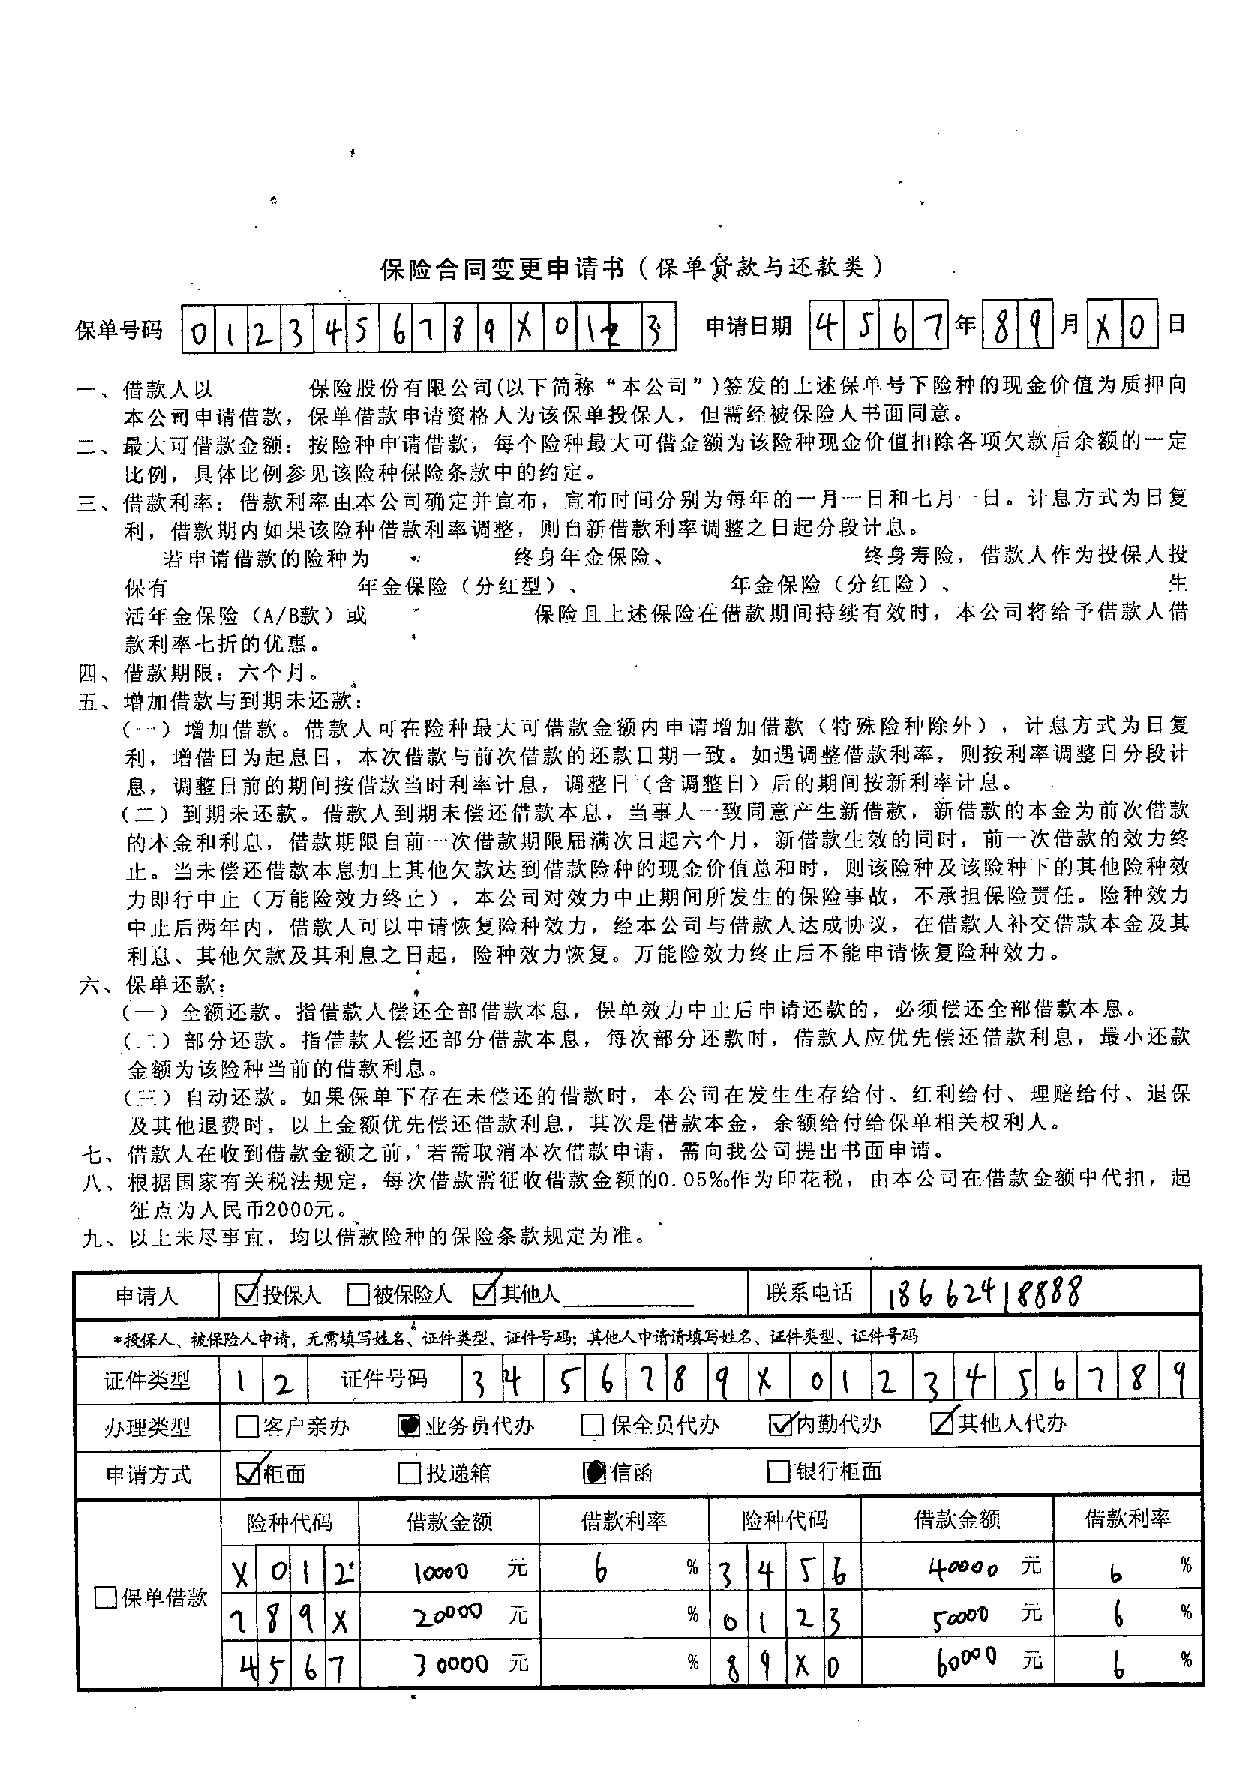 保险合同变更申请书（保单贷款与还款类）
保单号码 0 1 2 3 4 5 6 7 8 9 X 0 1 2 3 申请日期 4 5 6 7 年 8 9 月 X 0 日
一、借款人以 保险股份有限公司(以下简称“本公司”)签发的上述保单号下险种的现金价值为质押向
本公司申请借款，保单借款申请资格人为该保单投保人，但需经被保险人书面同意。
二、最大可借款金额：按险种申请借款，每个险种最大可借金额为该险种现金价值扣除各项欠款后余额的一定
比例，具体比例参见该险种保险条款中的约定。
三、借款利率：借款利率由本公司确定并宣布，宣布时间分别为每年的一月一日和七月一日。计息方式为日复
利，借款期内如果该险种借款利率调整，则自新借款利率调整之日起分段计息。
若申请借款的险种为 终身年金保险、 终身寿险，借款人作为投保人投
保有 年金保险（分红型）、 年金保险（分红险）、 生
活年金保险（A/B款）或 保险且上述保险在借款期间持续有效时，本公司将给予借款人借
款利率七折的优惠。
四、借款期限：六个月。
五、增加借款与到期未还款：
（一）增加借款。借款人可在险种最大可借款金额内申请增加借款（特殊险种除外），计息方式为日复
利，增借日为起息日，本次借款与前次借款的还款日期一致。如遇调整借款利率，则按利率调整日分段计
息，调整日前的期间按借款当时利率计息，调整日（含调整日）后的期间按新利率计息。
（二）到期未还款。借款人到期未偿还借款本息，当事人一致同意产生新借款，新借款的本金为前次借款
的本金和利息，借款期限自前一次借款期限届满次日起六个月，新借款生效的同时，前一次借款的效力终
止。当未偿还借款本息加上其他欠款达到借款险种的现金价值总和时，则该险种及该险种下的其他险种效
力即行中止（万能险效力终止），本公司对效力中止期间所发生的保险事故，不承担保险责任。险种效力
中止后两年内，借款人可以申请恢复险种效力，经本公司与借款人达成协议，在借款人补交借款本金及其
利息、其他欠款及其利息之日起，险种效力恢复。万能险效力终止后不能申请恢复险种效力。
六、保单还款：
（一）全额还款。指借款人偿还全部借款本息，保单效力中止后申请还款的，必须偿还全部借款本息。
（二）部分还款。指借款人偿还部分借款本息，每次部分还款时，借款人应优先偿还借款利息，最小还款
金额为该险种当前的借款利息。
（三）自动还款。如果保单下存在未偿还的借款时，本公司在发生生存给付、红利给付、理赔给付、退保
及其他退费时，以上金额优先偿还借款利息，其次是借款本金，余额给付给保单相关权利人。
七、借款人在收到借款金额之前，若需取消本次借款申请，需向我公司提出书面申请。
八、根据国家有关税法规定，每次借款需征收借款金额的0.05‰作为印花税，由本公司在借款金额中代扣，起
征点为人民币2000元。
九、以上未尽事宜，均以借款险种的保险条款规定为准。
申请人 投保人 被保险人 其他人 联系电话 18662418888
*投保人、被保险人申请，无需填写姓名、证件类型、证件号码；其他人申请请填写姓名、证件类型、证件号码
证件类型 1 2 证件号码 3 4 5 6 7 8 9 X 0 1 2 3 4 5 6 7 8 9
办理类型 客户亲办 业务员代办 保全员代办 内勤代办 其他人代办
申请方式 柜面 投递箱 信函 银行柜面
险种代码 借款金额 借款利率 险种代码 借款金额 借款利率
X 0 1 2 10000 元 6 % 3 4 5 6 40000 元 6 %
保单借款
7 8 9 X 20000 元 % 0 1 2 3 50000 元 6 %
4 5 6 7 30000 元 % 8 9 X 0 60000 元 6 %